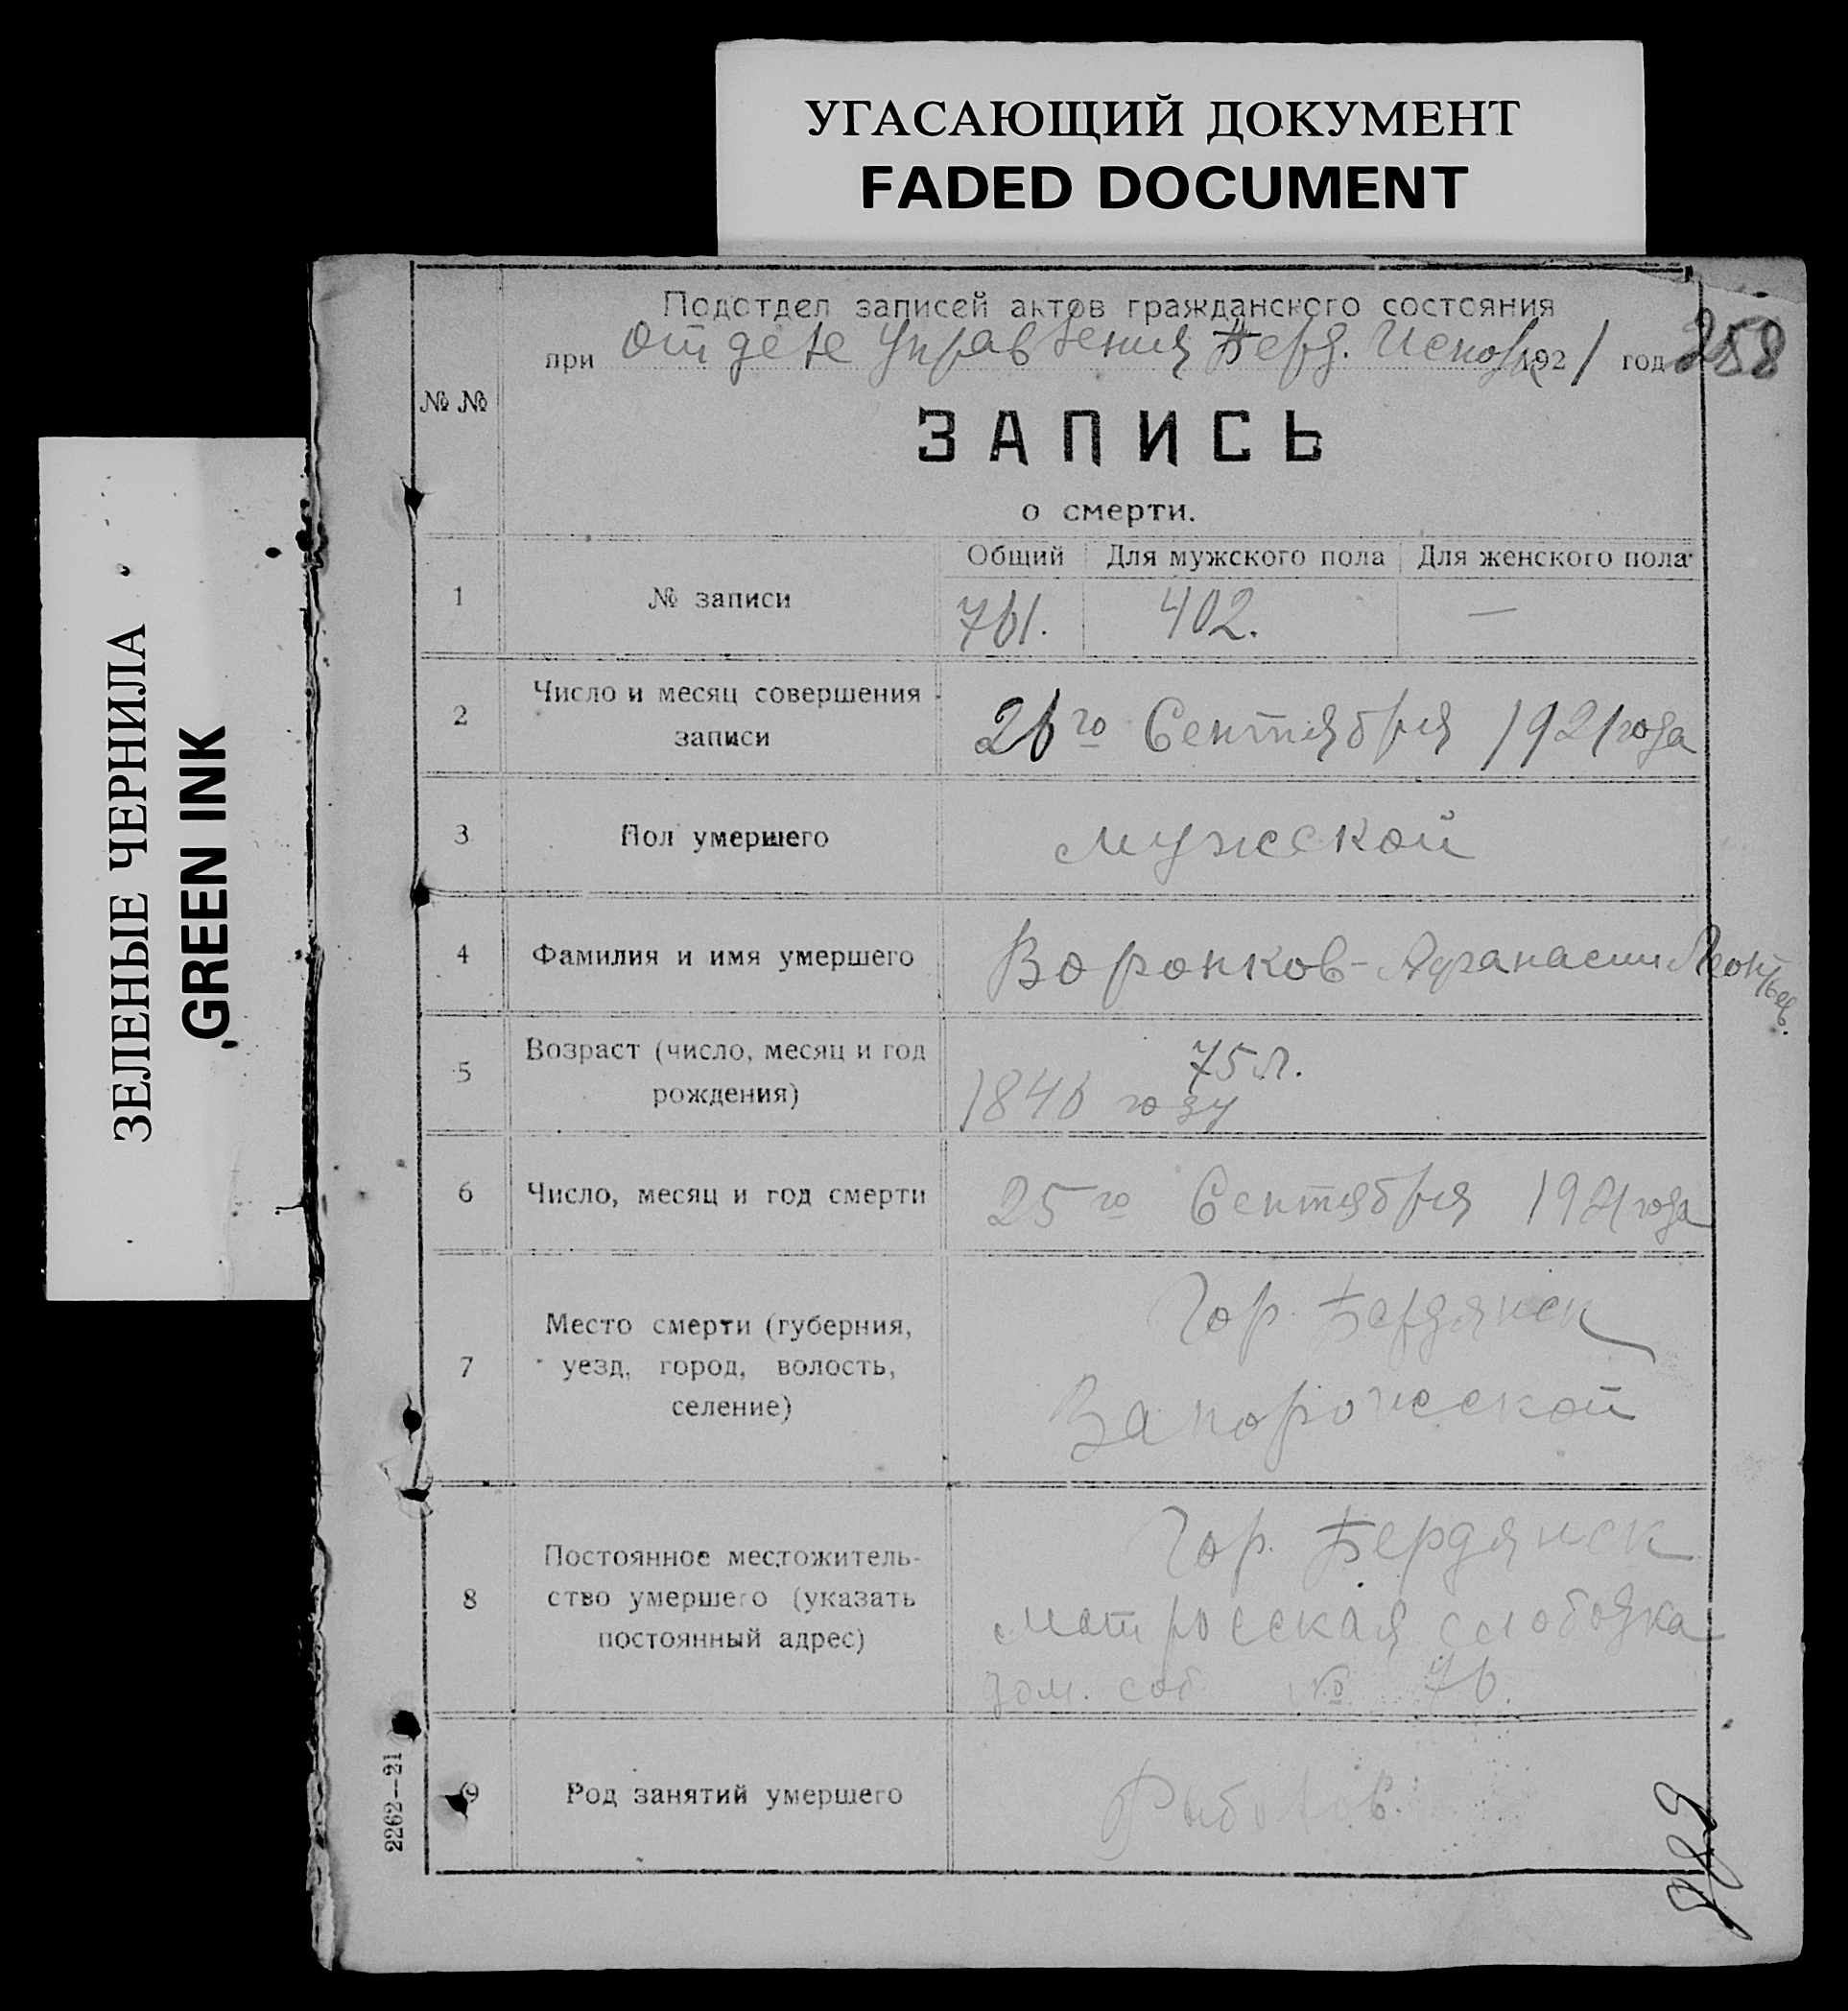 УГАСАЮЩИЙ ДОКУМЕНТ
FADED DOCUMENT
ЗЕЛЕНЫЕ ЧЕРНИЛА
GREEN INK
Подотдел записей актов гражданского состояния
при отделе Управления Берд. 1921 год 258
№ №
ЗАПИСЬ
о смерти.
Общий Для мужского пола Для женского пола
1 № записи 761. 402. —
2 Число и месяц совершения
записи
26го Сентября 1921 года
3 Пол умершего мужской
4 Фамилия и имя умершего Воронков - Афанасий Леонтьев.
5 Возраст (число, месяц и год
рождения)
75 л.
1846 году
6 Число, месяц и год смерти 25го Сентября 1921 года
7 Место смерти (губерния,
уезд, город, волость,
селение)
Гор. Бердянск
Запорожской
8 Постоянное местожитель-
ство умершего (указать
постоянный адрес)
Гор. Бердянск
Матросская слободка
дом. соб. № 76.
9 Род занятий умершего Рыболов.
2262—21